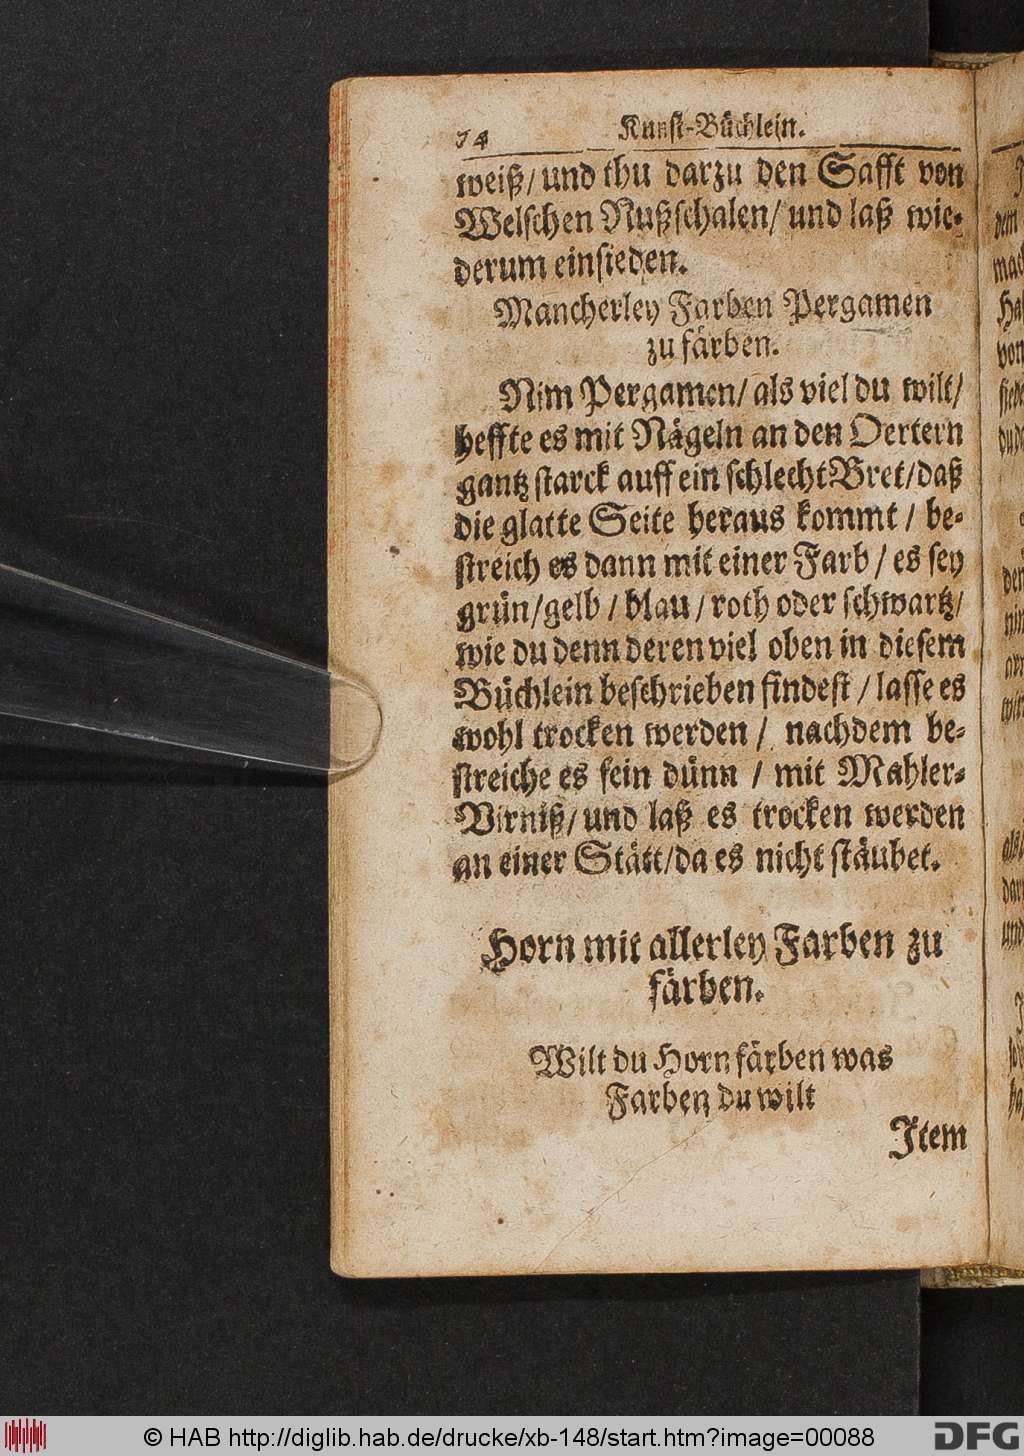 74 Kunst-Büchlein.
weiß/ und thu darzu den Safft von
Welschen Nußschalen/ und laß wie-
derum einsieden.
Mancherley Farben Pergamen
zu färben.
Nim Pergamen/ als viel du wilt/
heffte es mit Nägeln an den Oertern
gantz starck auff ein schlecht Bret/ daß
die glatte Seite heraus kommt / be-
streich es dann mit einer Farb / es sey
grün/ gelb / blau / roth oder schwartz/
wie du denn deren viel oben in diesem
Büchlein beschrieben findest / lasse es
wohl trocken werden / nachdem be-
streiche es fein dünn / mit Mahler-
Virniß/ und laß es trocken werden
an einer Stätt/ da es nicht stäubet.
Horn mit allerley Farben zu
färben.
Wilt du Horn färben was
Farben du wilt
Item
© HAB http://diglib.hab.de/drucke/xb-148/start.htm?image=00088
DFG